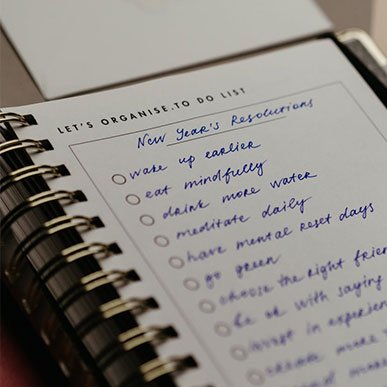 LET'S ORGANISE. TO DO LIST
New Year's Resolutions
wake up earlier
eat mindfully
drink more water
meditate daily
have mental reset days
go green
choose the right
be ok with saying
invest in
create more